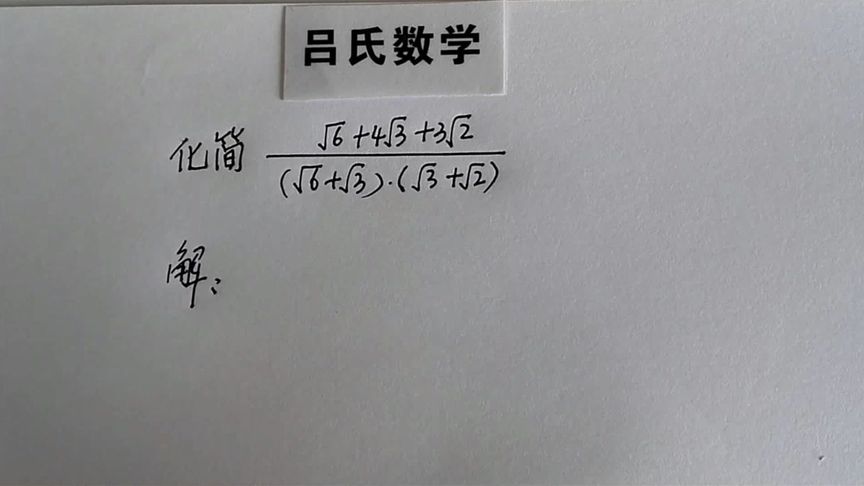 吕氏数学
化简 (√6+4√3+3√2)/((√6+√3)·(√3+√2))
解：